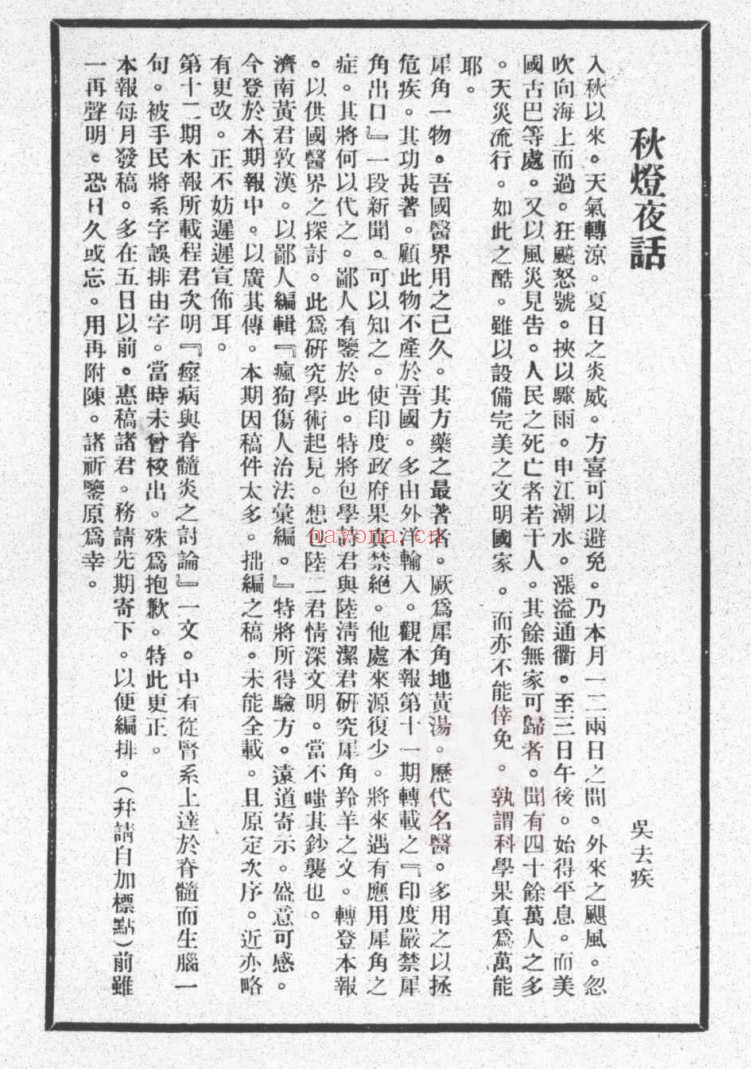 秋燈夜話
吳去疾
入秋以來。天氣轉涼。夏日之炎威。方喜可以避免。乃本月一二兩日之間。外來之颶風。忽
吹向海上而過。狂飈怒號。挾以驟雨。申江潮水。漲溢通衢。至三日午後。始得平息。而美
國古巴等處。又以風災見告。人民之死亡者若干人。其餘無家可歸者。聞有四十餘萬人之多
。天災流行。如此之酷。雖以設備完美之文明國家。而亦不能倖免。孰謂科學果真爲萬能
耶。
犀角一物。吾國醫界用之已久。其方藥之最著者。厥爲犀角地黃湯。歷代名醫。多用之以拯
危疾。其功甚著。顧此物不產於吾國。多由外洋輸入。觀本報第十一期轉載之『印度嚴禁犀
角出口』一段新聞。可以知之。使印度政府果真禁絕。他處來源復少。將來遇有應用犀角之
症。其將何以代之。鄙人有鑒於此。特將包學訪君與陸清潔君研究犀角羚羊之文。轉登本報
。以供國醫界之探討。此爲研究學術起見。想包陸二君情深文明。當不嗤其鈔襲也。
濟南黃君敦漢。以鄙人編輯『瘋狗傷人治法彙編。』特將所得驗方。遠道寄示。盛意可感。
今登於本期報中。以廣其傳。本期因稿件太多。拙編之稿。未能全載。且原定次序。近亦略
有更改。正不妨遲遲宣佈耳。
第十二期本報所載程君次明『瘂病與脊髓炎之討論』一文。中有從腎系上達於脊髓而生腦一
句。被手民將系字誤排由字。當時未曾校出。殊爲抱歉。特此更正。
本報每月發稿。多在五日以前。惠稿諸君。務請先期寄下。以便編排。（幷請自加標點）前雖
一再聲明。恐日久或忘。用再附陳。諸祈鑒原爲幸。
nayona.cn